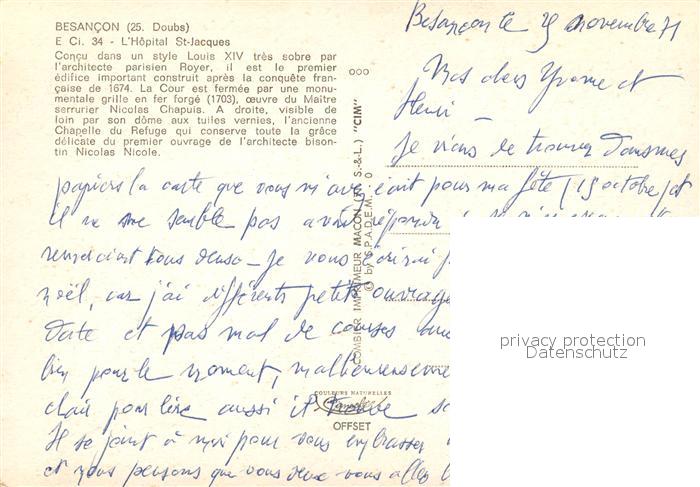 BESANÇON (25. Doubs)
E Ci. 34 - L'Hôpital St-Jacques
Conçu dans un style Louis XIV très sobre par
l'architecte parisien Royer, il est le premier
édifice important construit après la conquête fran-
çaise de 1674. La Cour est fermée par une monu-
mentale grille en fer forgé (1703), œuvre du Maître
serrurier Nicolas Chapuis. A droite, visible de
loin par son dôme aux tuiles vernies, l'ancienne
Chapelle du Refuge qui conserve toute la grâce
délicate du premier ouvrage de l'architecte bison-
tin Nicolas Nicole.
COMBIER IMPRIMEUR MACON (71 S.-&-L.) "CIM"
© by S.P.A.D.E.M.
COULEURS NATURELLES
OFFSET
Besançon le novembre 71
Mes chers Yvonne et
Henri -
Je viens de trouver dans mes
papiers la carte que vous m'avez écrit pour ma fête (15 octobre) et
il ne me semble pas avoir répondu
remerciant tous deux - Je vous écrirai
noël, car j'ai différents petits ouvrages
date et pas mal de courses
bien pour le moment, malheureusement
clair pour lire aussi il trouve
Il se joint à moi pour vous embrasser
et nous pensons que vous deux vous allez
privacy protection
Datenschutz